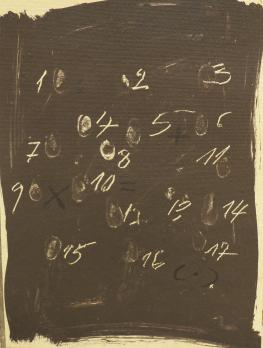 1 2 3
4 5 6
7 8 11
9 × 10 =
12 13 14
15 16 17
(·)